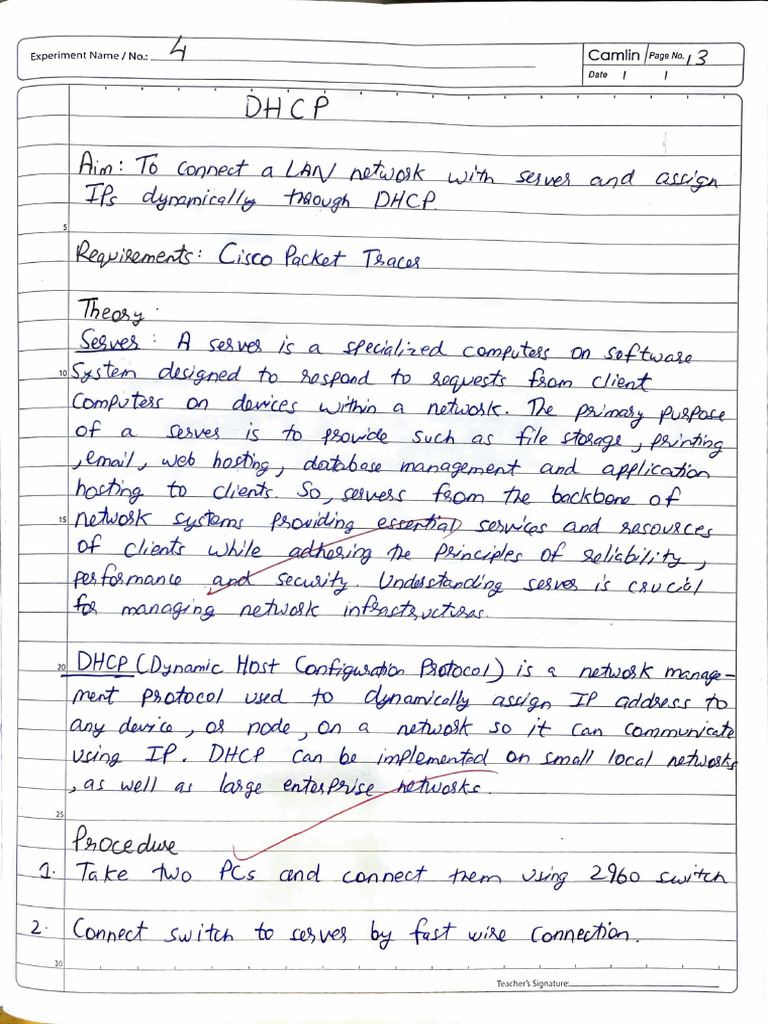 Experiment Name / No.: 4
Camlin Page No. 13
Date / /
DHCP
Aim: To connect a LAN network with server and assign
IPs dynamically through DHCP.
5
Requirements: Cisco Packet Tracer
Theory:
Server: A server is a specialized computers or software
10 System designed to respond to requests from client
computers or devices within a network. The primary purpose
of a server is to provide such as file storage, printing
, email, web hosting, database management and application
hosting to clients. So, servers from the backbone of
15 network systems providing essential services and resources
of clients while adhering the principles of reliability,
performance and security. Understanding server is crucial
for managing network infrastructures.
20 DHCP (Dynamic Host Configuration Protocol) is a network manage-
ment protocol used to dynamically assign IP address to
any device, or node, on a network so it can communicate
using IP. DHCP can be implemented on small local networks
, as well as large enterprise networks.
25
Procedure
1. Take two PCs and connect them using 2960 switch
2. Connect switch to server by fast wire connection.
30
Teacher's Signature: